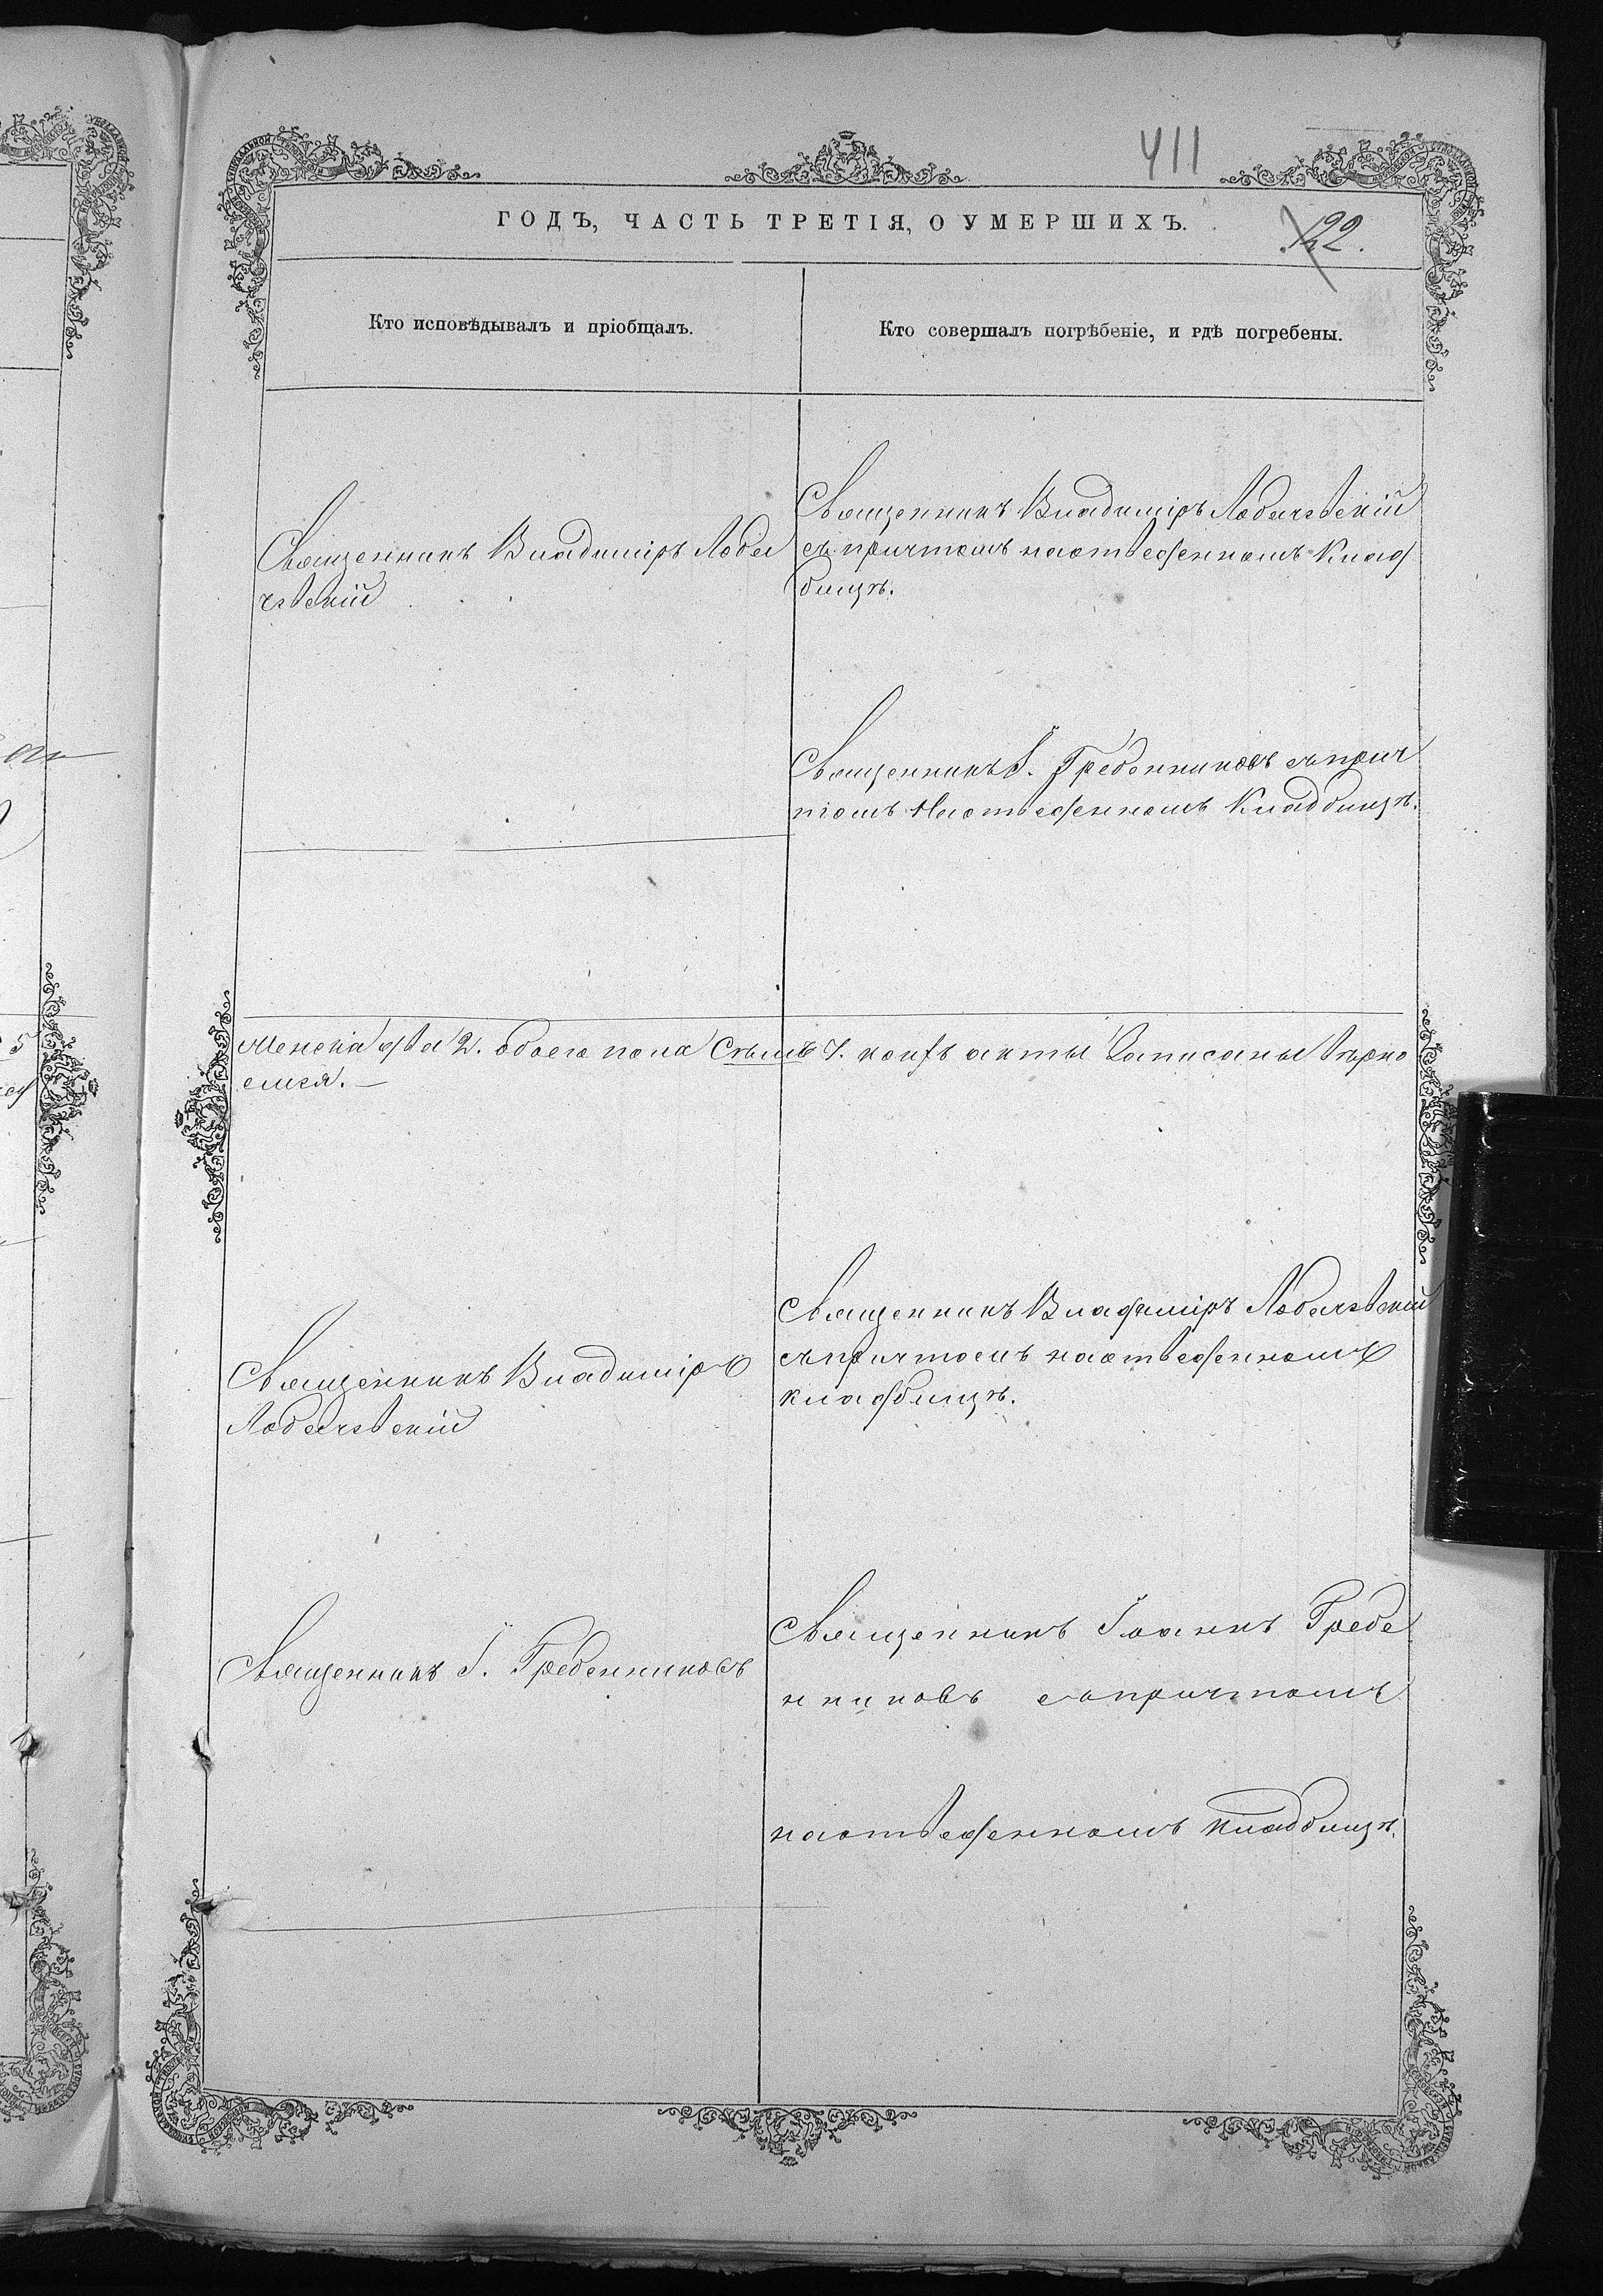 411
ГОДЪ, ЧАСТЬ ТРЕТІЯ, О УМЕРШИХЪ.
122.
Кто исповѣдывалъ и пріобщалъ.
Кто совершалъ погрѣбеніе, и гдѣ погребены.
Священникъ Владиміръ Лоба
чевскій
Священникъ Владиміръ Лобачевскій
съ причтомъ наотведенномъ Клад
бищѣ.
Священникъ І. Гребенниковъ съ прич
томъ Наотведенномъ Кладбищѣ.
Женска два 2. обоего пола Семь 7. акты Записаны вѣрно
Священникъ Владиміръ
Лобачевскій
Священникъ Владиміръ Лобачевскій
съ причтомъ наотведенномъ
кладбищѣ.
Священникъ І. Гребенниковъ
Священникъ Іоаннъ Гребе
нниковъ съ причтомъ
наотведенномъ кладбищѣ.